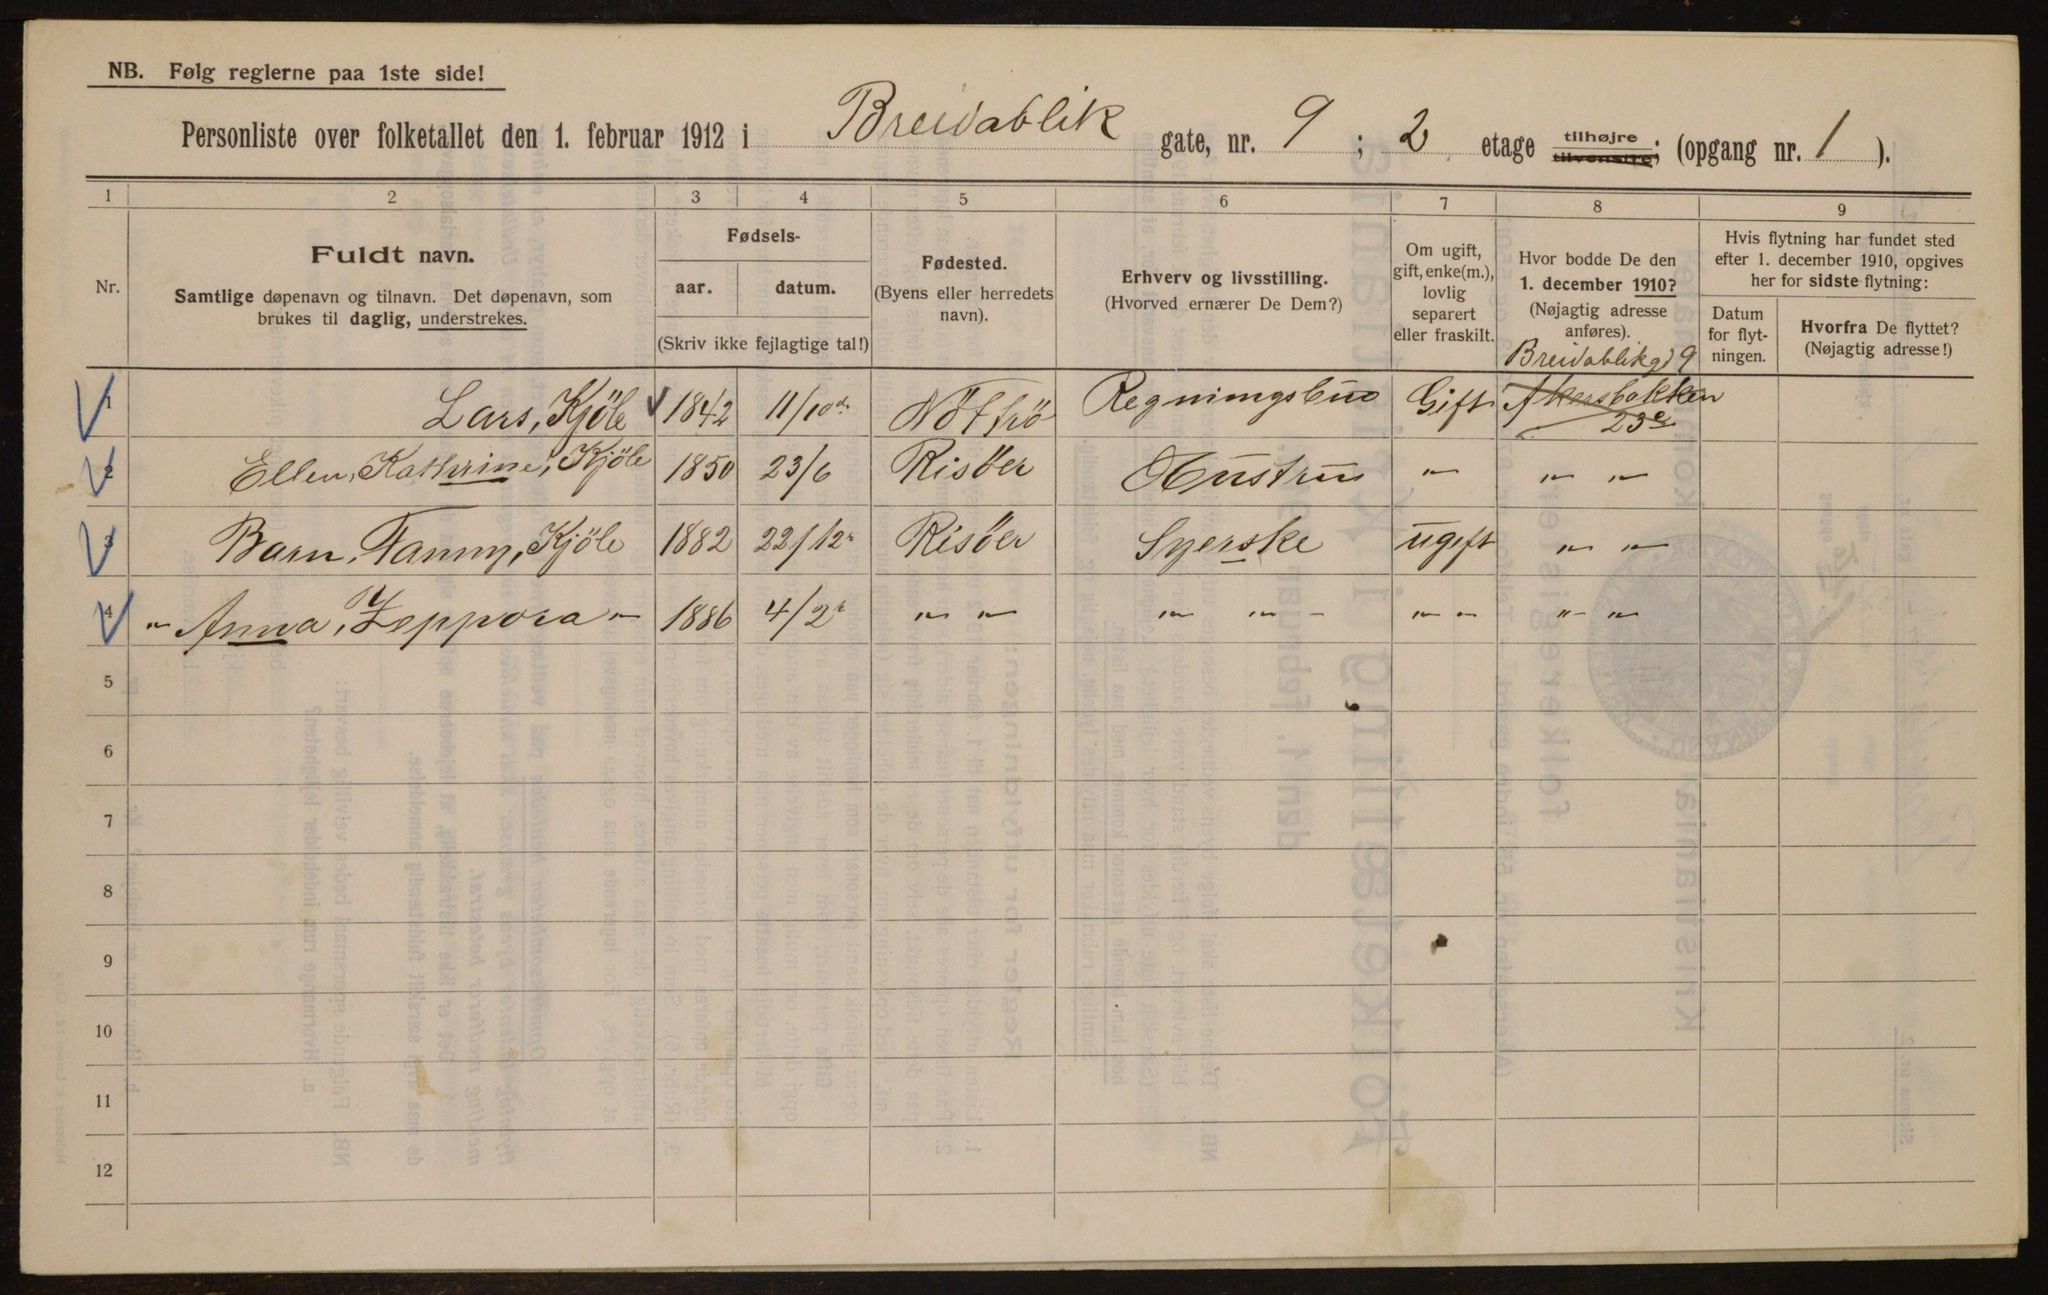 NB. Følg reglerne paa 1ste side!
Personliste over folketallet den 1. februar 1912 i Breidablik gate, nr. 9 ; 2 etage tilhøjre tilvenstre; (opgang nr. 1 ).
1 2 3 4 5 6 7 8 9
Nr.
Fuldt navn.
Samtlige døpenavn og tilnavn. Det døpenavn, som
brukes til daglig, understrekes.
Fødsels-
aar. datum.
(Skriv ikke fejlagtige tal!)
Fødested.
(Byens eller herredets
navn).
Erhverv og livsstilling.
(Hvorved ernærer De Dem?)
Om ugift,
gift, enke(m.),
lovlig
separert
eller fraskilt.
Hvor bodde De den
1. december 1910?
(Nøjagtig adresse
anføres).
Hvis flytning har fundet sted
efter 1. december 1910, opgives
her for sidste flytning:
Datum
for flyt-
ningen.
Hvorfra De flyttet?
(Nøjagtig adresse!)
Breidablikg 9
1 Lars, Kjöle 1842 11/10 Regningsbud Gift Akersbakken
23c
2 Ellen, Kathrine, Kjöle 1850 23/6 Risöer Hustru " " "
3 Barn, Fanny, Kjöle 1882 22/12 Risöer Syerske ugift " "
4 " Anna, Zeppora " 1886 4/2 " " " " " " " " "
5
6
7
8
9
10
11
12